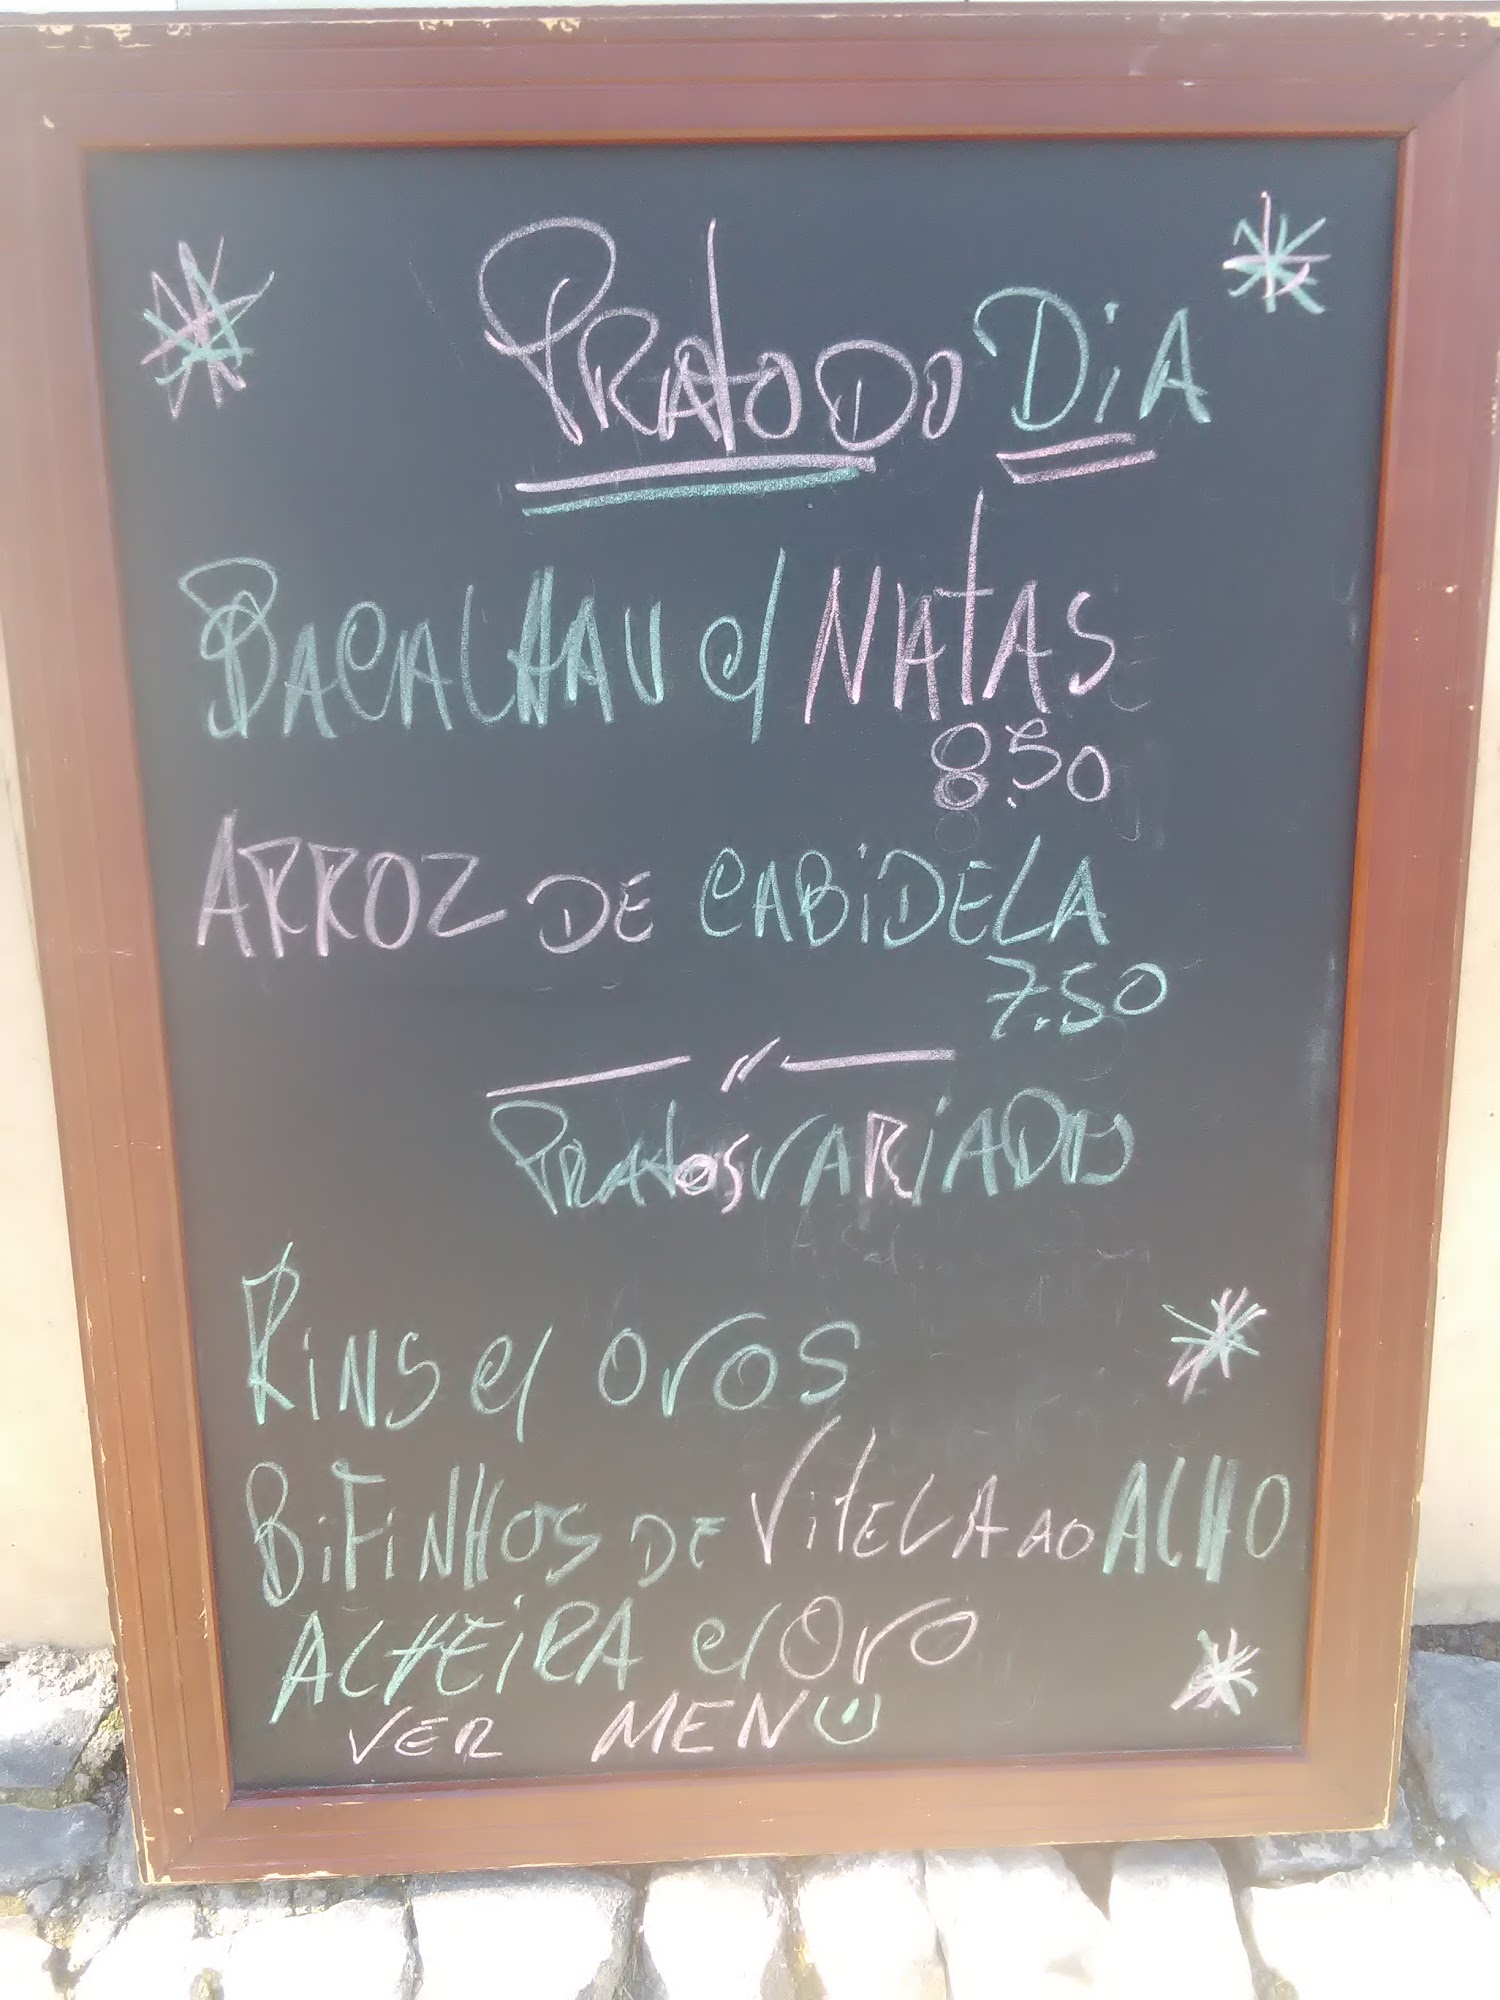 PRATO DO DiA
BACALHAU c/ NATAS
8.50
ARROZ DE CABiDELA
7.50
PRATOS VARiADOS
RiNS c/ OVOS
BiFiNHOS DE ViTELA AO ALHO
ALHEiRA c/ OVO
VER MENU